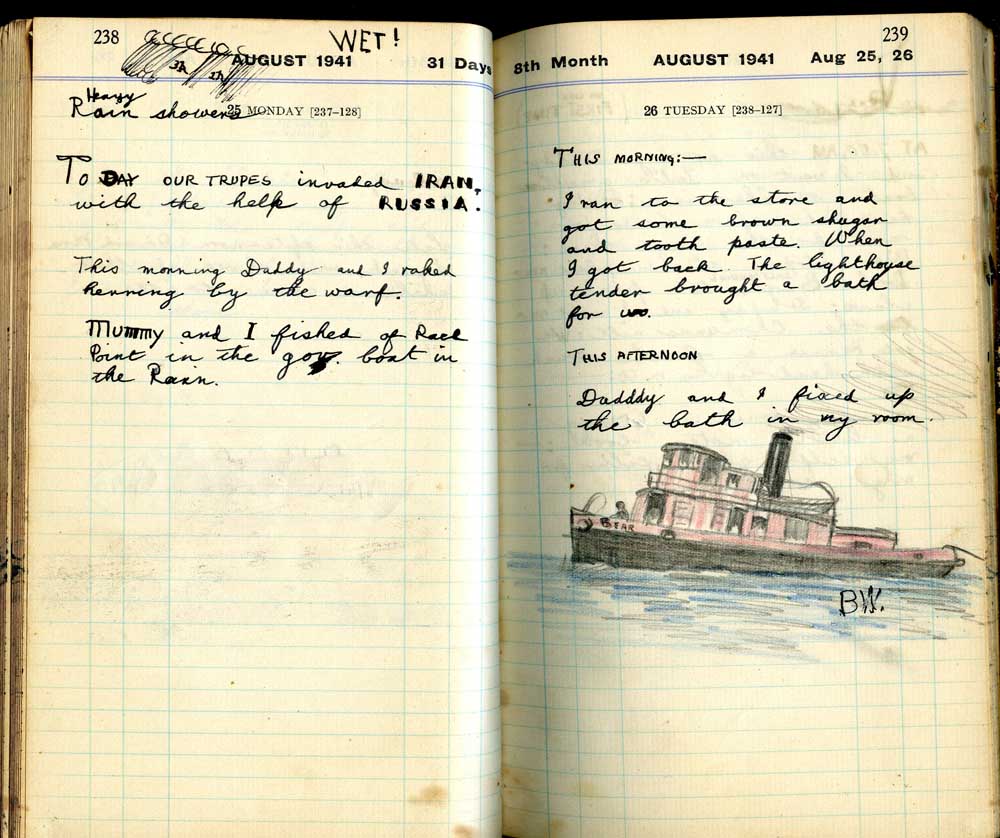 238
WET!
AUGUST 1941
31 Days
Heavy
Rain showers
25 MONDAY [237–128]
To DAY OUR TRUPES invaded IRAN,
with the help of RUSSIA.
This morning Daddy and I raked
herring by the warf.
Mummy and I fished of
Point in the gov. boat in
the Rain.
239
8th Month
AUGUST 1941
Aug 25, 26
26 TUESDAY [238–127]
THIS MORNING:—
I ran to the store and
got some brown shugar
and tooth paste. When
I got back. The lighthouse
tender brought a bath
for us.
THIS AFTERNOON
Dadddy and I fixed up
the bath in my room.
BEAR
BW.